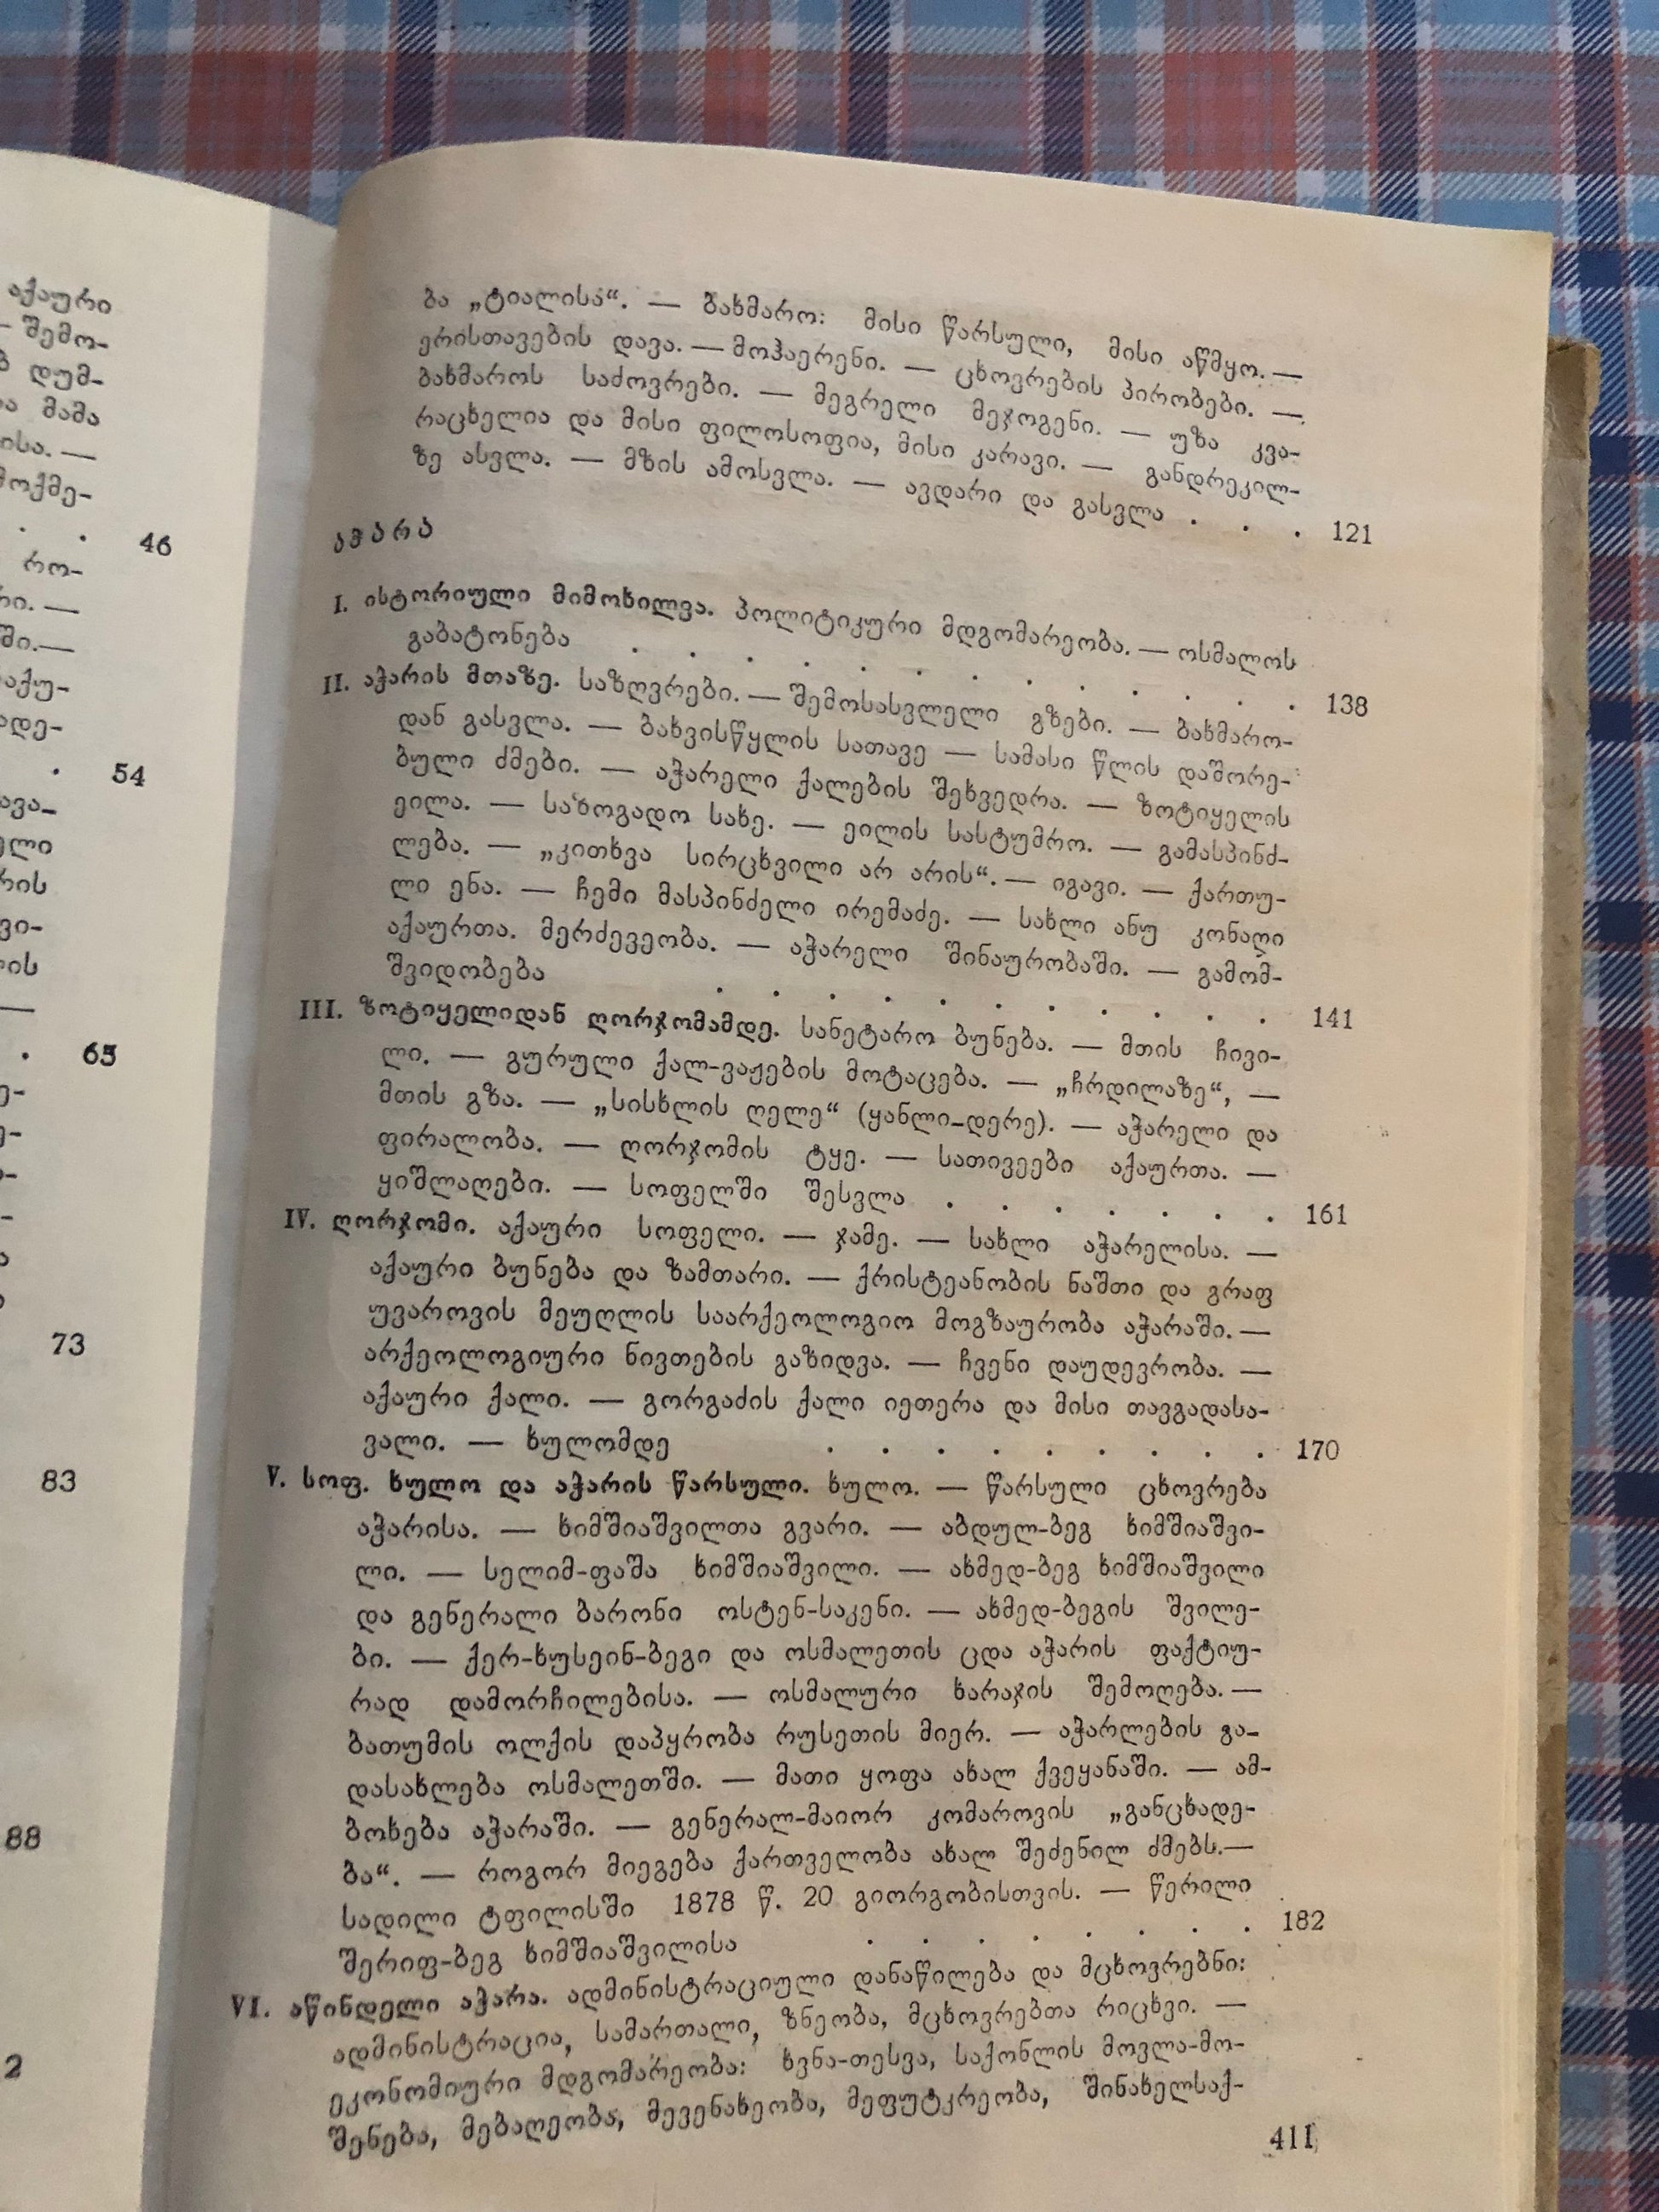 აქაური
— შემო-
დუმ-
მამა
ისა. —
მოქმე-
. . 46
რო-
რი. —
ში.—
აქუ-
ადე-
. 54
ავა-
ელი
რის
ვი-
ლის
—
. 65
73
83
88
2
ბა „ტიალისა“. — ბახმარო: მისი წარსული, მისი აწმყო. —
ერისთავების დავა. — მოჰაერენი. — ცხოვრების პირობები. —
ბახმაროს საძოვრები. — მეგრელი მეჯოგენი. — უზა კვა-
რაცხელია და მისი ფილოსოფია, მისი კარავი. — განდრეკილ-
ზე ასვლა. — მზის ამოსვლა. — ავდარი და გასვლა . . . 121
აჭარა
I. ისტორიული მიმოხილვა. პოლიტიკური მდგომარეობა. — ოსმალოს
გაბატონება . . . . . . . . . . . . . 138
II. აჭარის მთაზე. საზღვრები. — შემოსასვლელი გზები. — ბახმარო-
დან გასვლა. — ბახვისწყლის სათავე — სამასი წლის დაშორე-
ბული ძმები. — აჭარელი ქალების შეხვედრა. — ზოტიყელის
ეილა. — საზოგადო სახე. — ეილის სასტუმრო. — გამასპინძ-
ლება. — „კითხვა სირცხვილი არ არის“. — იგავი. — ქართუ-
ლი ენა. — ჩემი მასპინძელი ირემაძე. — სახლი ანუ კონაღი
აქაურთა. მერძევეობა. — აჭარელი შინაურობაში. — გამომ-
შვიდობება . . . . . . . . . . . 141
III. ზოტიყელიდან ღორჯომამდე. სანეტარო ბუნება. — მთის ჩივი-
ლი. — გურული ქალ-ვაჟების მოტაცება. — „ჩრდილაზე“, —
მთის გზა. — „სისხლის ღელე“ (ყანლი-დერე). — აჭარელი და
ფირალობა. — ღორჯომის ტყე. — სათივეები აქაურთა. —
ყიშლაღები. — სოფელში შესვლა . . . . . . . 161
IV. ღორჯომი. აქაური სოფელი. — ჯამე. — სახლი აჭარელისა. —
აქაური ბუნება და ზამთარი. — ქრისტეანობის ნაშთი და გრაფ
უვაროვის მეუღლის საარქეოლოგიო მოგზაურობა აჭარაში. —
არქეოლოგიური ნივთების გაზიდვა. — ჩვენი დაუდევრობა. —
აქაური ქალი. — გორგაძის ქალი იეთერა და მისი თავგადასა-
ვალი. — ხულომდე . . . . . . . . . 170
V. სოფ. ხულო და აჭარის წარსული. ხულო. — წარსული ცხოვრება
აჭარისა. — ხიმშიაშვილთა გვარი. — აბდულ-ბეგ ხიმშიაშვი-
ლი. — სელიმ-ფაშა ხიმშიაშვილი. — ახმედ-ბეგ ხიმშიაშვილი
და გენერალი ბარონი ოსტენ-საკენი. — ახმედ-ბეგის შვილე-
ბი. — ქერ-ხუსეინ-ბეგი და ოსმალეთის ცდა აჭარის ფაქტიუ-
რად დამორჩილებისა. — ოსმალური ხარაჯის შემოღება. —
ბათუმის ოლქის დაპყრობა რუსეთის მიერ. — აჭარლების გა-
დასახლება ოსმალეთში. — მათი ყოფა ახალ ქვეყანაში. — ამ-
ბოხება აჭარაში. — გენერალ-მაიორ კომაროვის „განცხადე-
ბა“. — როგორ მიეგება ქართველობა ახალ შეძენილ ძმებს.—
სადილი ტფილისში 1878 წ. 20 გიორგობისთვის. — წერილი
შერიფ-ბეგ ხიმშიაშვილისა . . . . . . . . 182
VI. აწინდელი აჭარა. ადმინისტრაციული დანაწილება და მცხოვრებნი:
ადმინისტრაცია, სამართალი, ზნეობა, მცხოვრებთა რიცხვი. —
ეკონომიური მდგომარეობა: ხვნა-თესვა, საქონლის მოვლა-მო-
შენება, მებაღეობა, მევენახეობა, მეფუტკრეობა, შინახელსაქ-
411